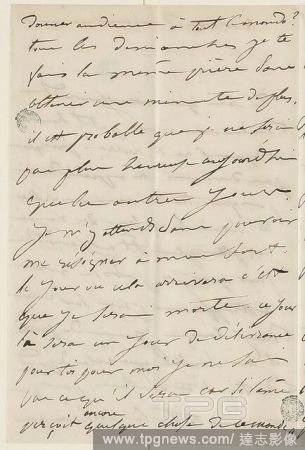 donner audience à tout le monde?
tous les dimanches je te
fais la même prière sans
obtenir une minute de plus.
il est probable que je ne serai
pas plus heureuse aujourdhui
que les autres jours.
je m'y attends sans pouvoir
me résigner à mon sort.
le jour où cela arrivera c'est
que je serai morte. ce jour
là sera un jour de délivrance
pour toi pour moi je ne sais
pas ce qu'il sera car si l'âme
perçoit encore quelque chose de ce monde
TPG
www.tpgnews.com / 達志影像